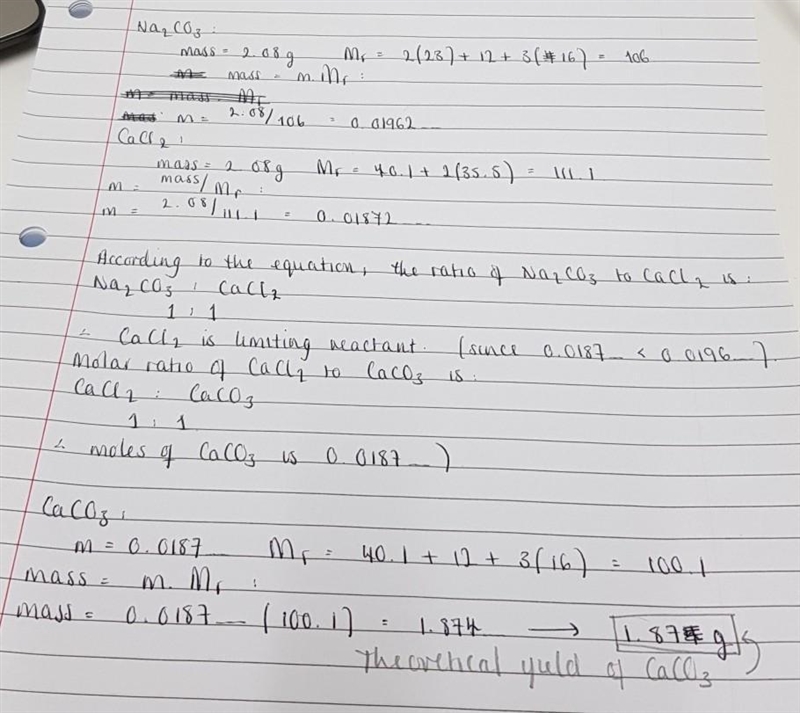 Na₂CO₃ :
mass = 2.08g Mr = 2(23) + 12 + 3(16) = 106
mass = m. Mr :
m = mass. Mr
m = 2.08/106 = 0.01962...
CaCl₂ :
mass = 2.08g Mr = 40.1 + 2(35.5) = 111.1
m = mass/Mr :
m = 2.08/111.1 = 0.01872...
According to the equation, the ratio of Na₂CO₃ to CaCl₂ is:
Na₂CO₃ : CaCl₂
1 : 1
∴ CaCl₂ is limiting reactant. (since 0.0187... < 0.0196...)
Molar ratio of CaCl₂ to CaCO₃ is:
CaCl₂ : CaCO₃
1 : 1
∴ moles of CaCO₃ is 0.0187...)
CaCO₃ :
m = 0.0187... Mr = 40.1 + 12 + 3(16) = 100.1
mass = m. Mr :
mass = 0.0187... (100.1) = 1.874 → 1.87 g
Theoretical yield of CaCO₃